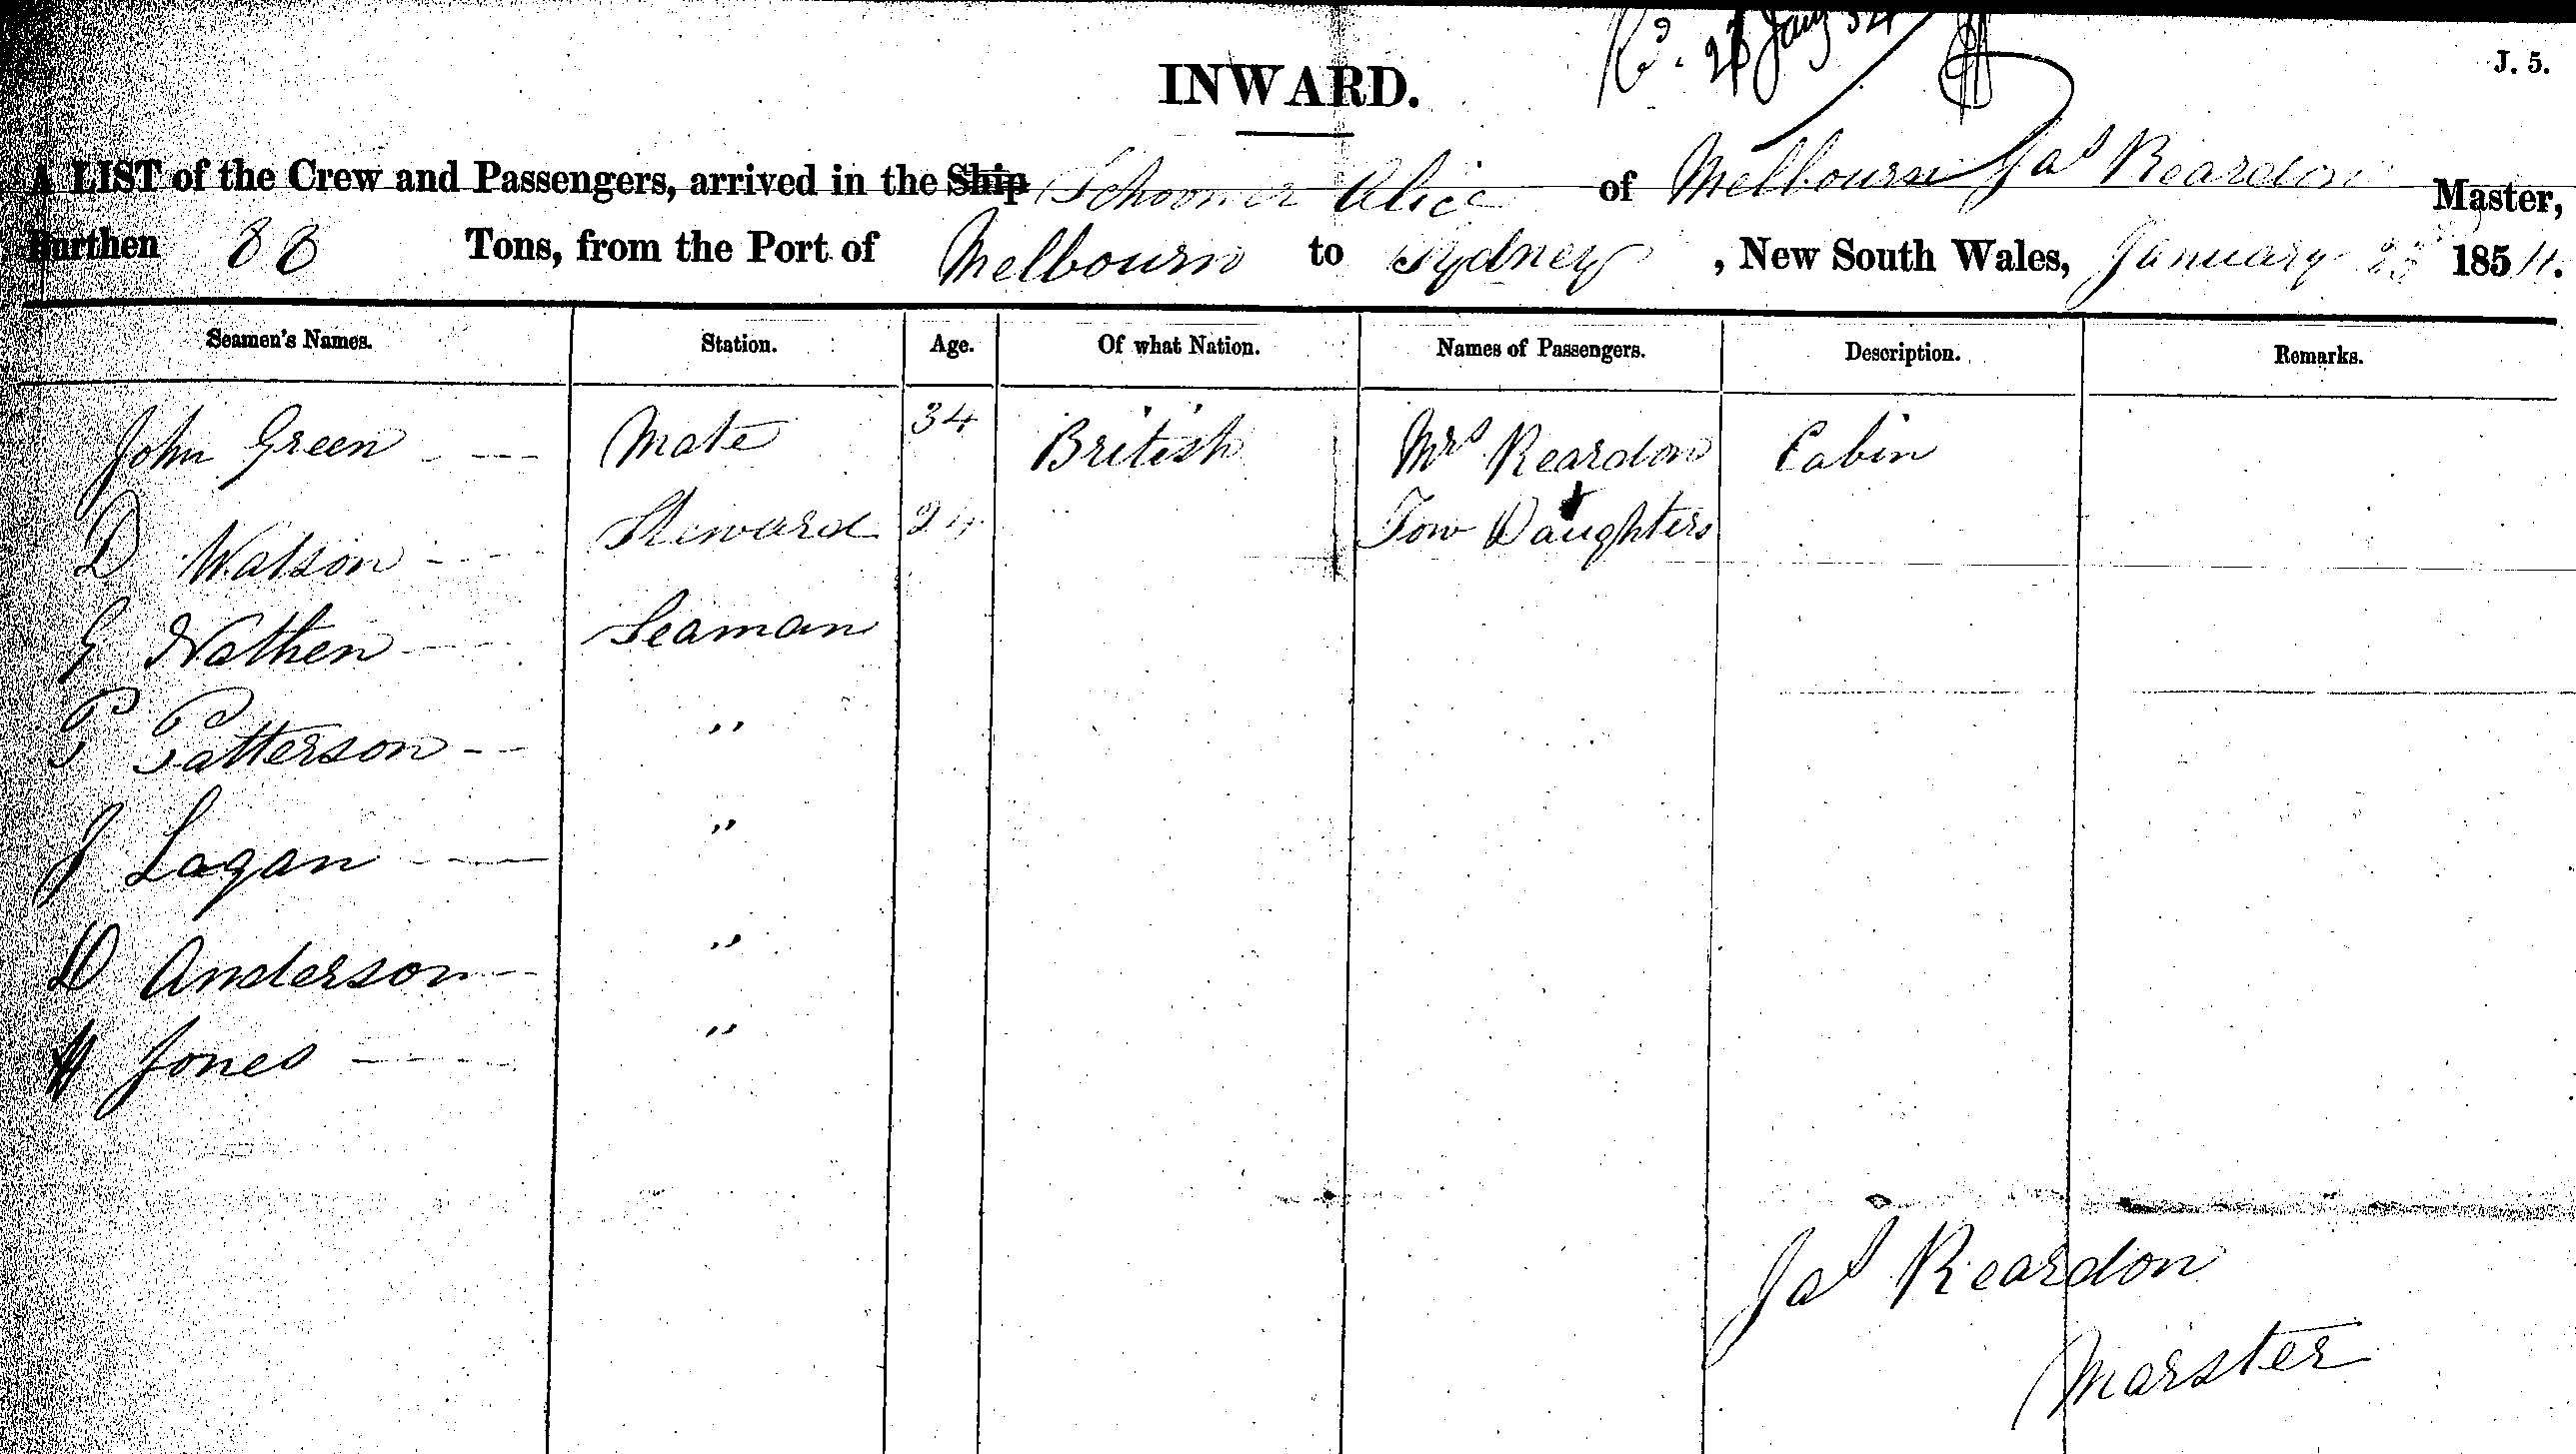 Rd. 28 Jany 54
J. 5.
INWARD.
A LIST of the Crew and Passengers, arrived in the Ship Schooner Alice of Melbourn Jas Reardon Master,
Burthen 88 Tons, from the Port of Melbourn to Sydney, New South Wales, January 1854.
Seamen's Names. Station. Age. Of what Nation. Names of Passengers. Description. Remarks.
John Green - --- Mate 34 British Mrs Reardon Cabin
D Watson - --- Steward 24 " Tow Daughters
G Nathen --- Seaman
P Patterson -- "
J Lagan --- "
D Anderson -- "
H Jones --- "
Jas Reardon
Marster